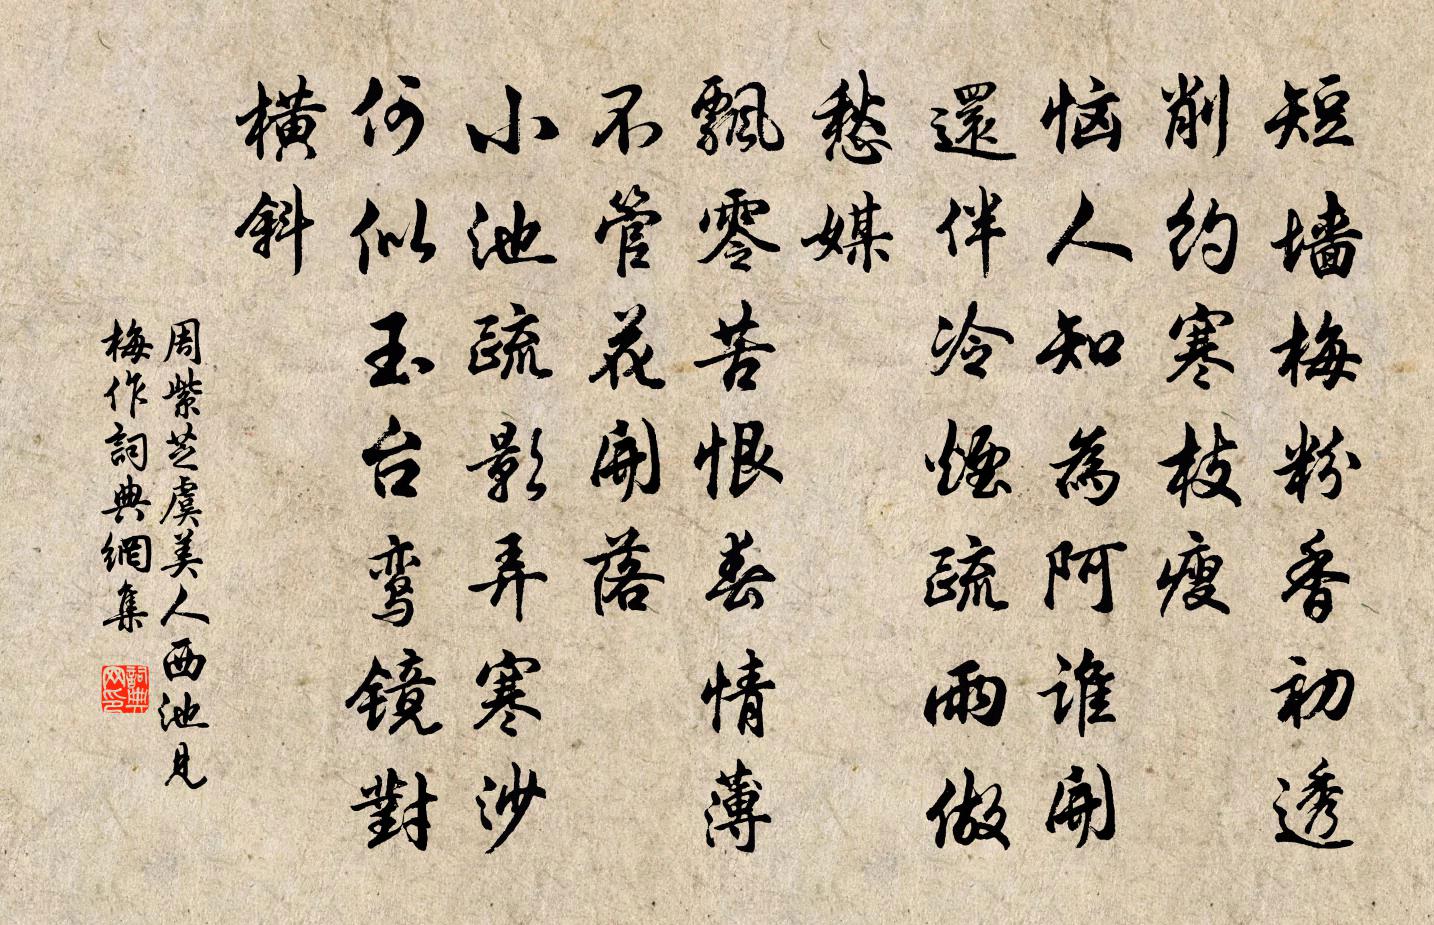 短墙梅粉香初透
削约寒枝瘦
恼人知為阿谁開
還伴冷煙疏雨做
愁媒
飄零苦恨春情薄
不管花開落
小池疏影弄寒沙
何似玉台鸾镜對
横斜
周紫芝虞美人西池見
梅作詞典網集
詞典网印